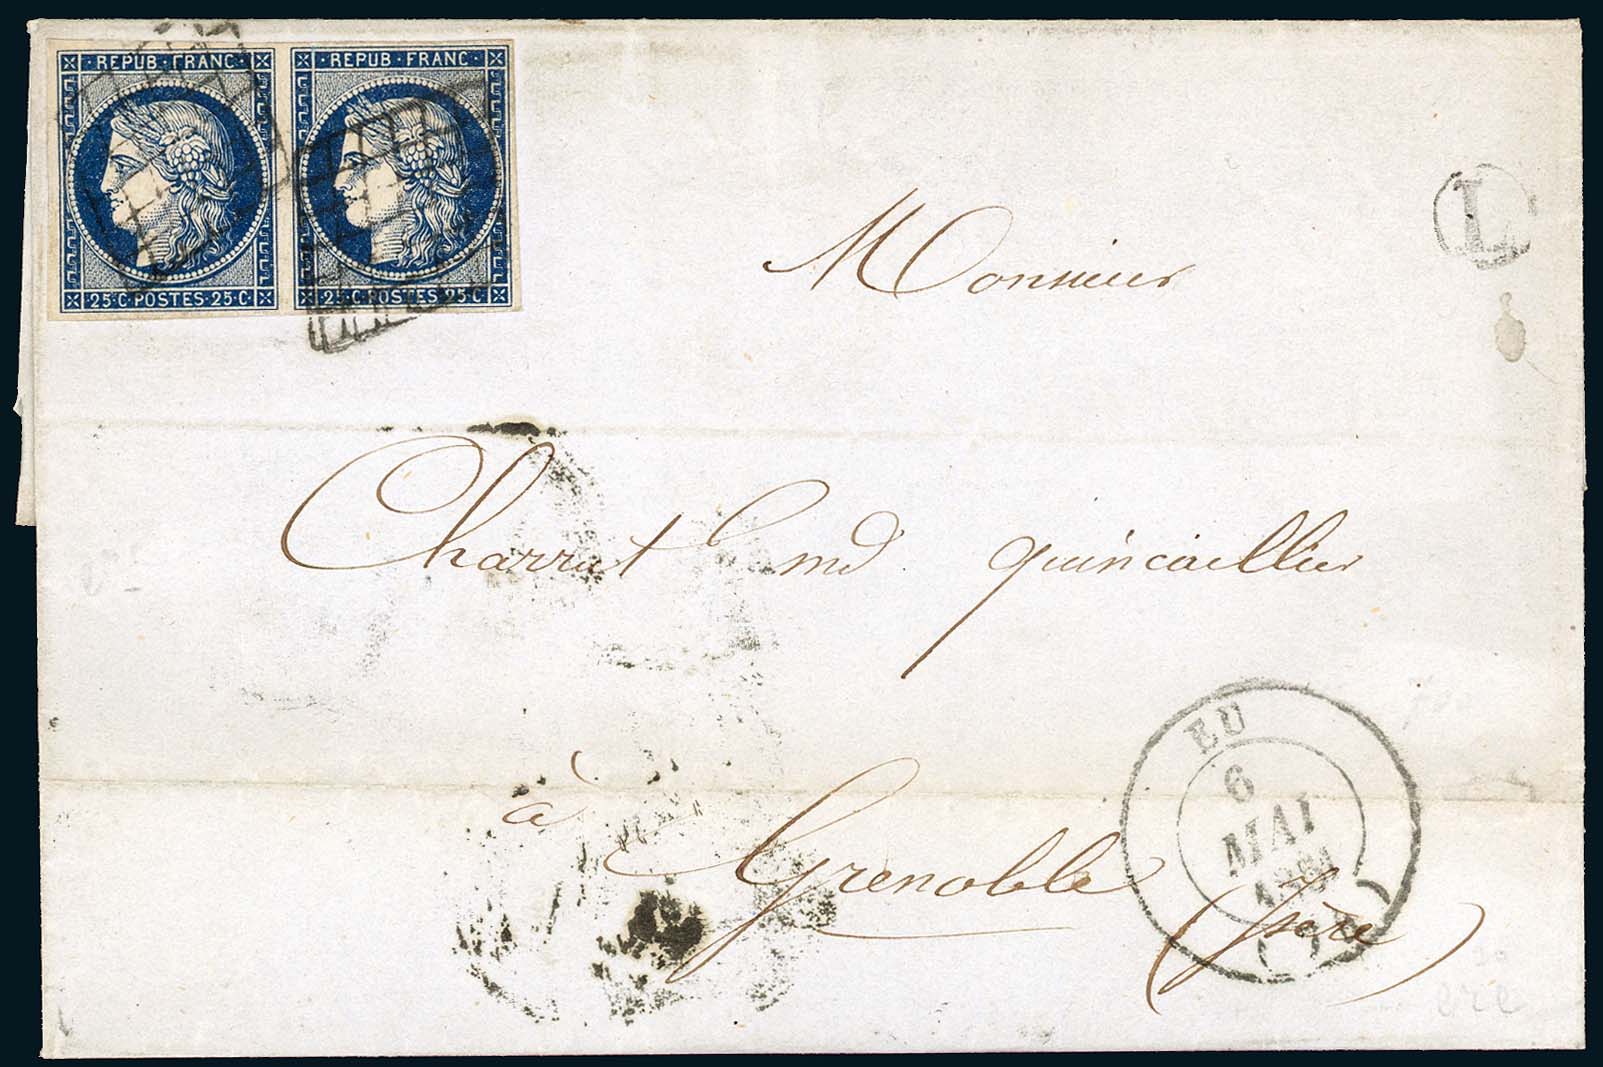 REPUB · FRANC ·
REPUB · FRANC ·
25 · C · POSTES · 25 · C
25 · C · POSTES · 25 · C
L
Monsieur
Charrut md quincaillier
à Grenoble (Isère)
EU
6
MAI
1851